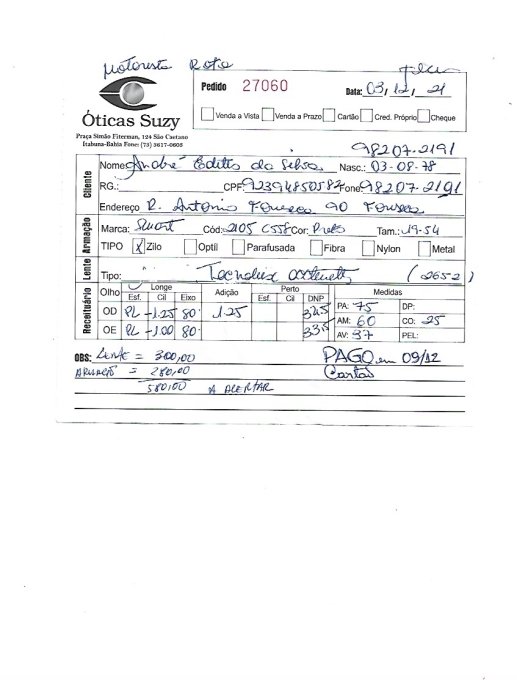 Motorista Rota
Óticas Suzy
Praça Simão Fiterman, 124 São Caetano
Itabuna-Bahia Fone: (73) 3617-0605
Pedido 27060 Data: 03, 12, 21
Venda a Vista Venda a Prazo Cartão Cred. Próprio Cheque
98207.2191
Cliente
Nome: André da Silva Nasc.: 03-08-78
RG.: CPF: 92394850582 Fone: 98207-2191
Endereço R. Antonio Fonseca 90 Fonseca
Armação
Marca: Smart Cód: 2105 C558 Cor: Preto Tam.: 19-54
TIPO X Zilo Optil Parafusada Fibra Nylon Metal
Lente
Tipo: (2652)
Receituário
Olho Longe Adição Perto DNP Medidas
Esf. Cil Eixo Esf. Cil
OD PL -1.25 80 1.25 34,5 PA: 75 DP:
OE PL -1.00 80 33,5 AM: 60 CO: 25
AV: 37 PEL:
OBS: Lente = 300,00 PAGO em 09/12
Armação = 280,00 Cartão
580,00 A ACERTAR